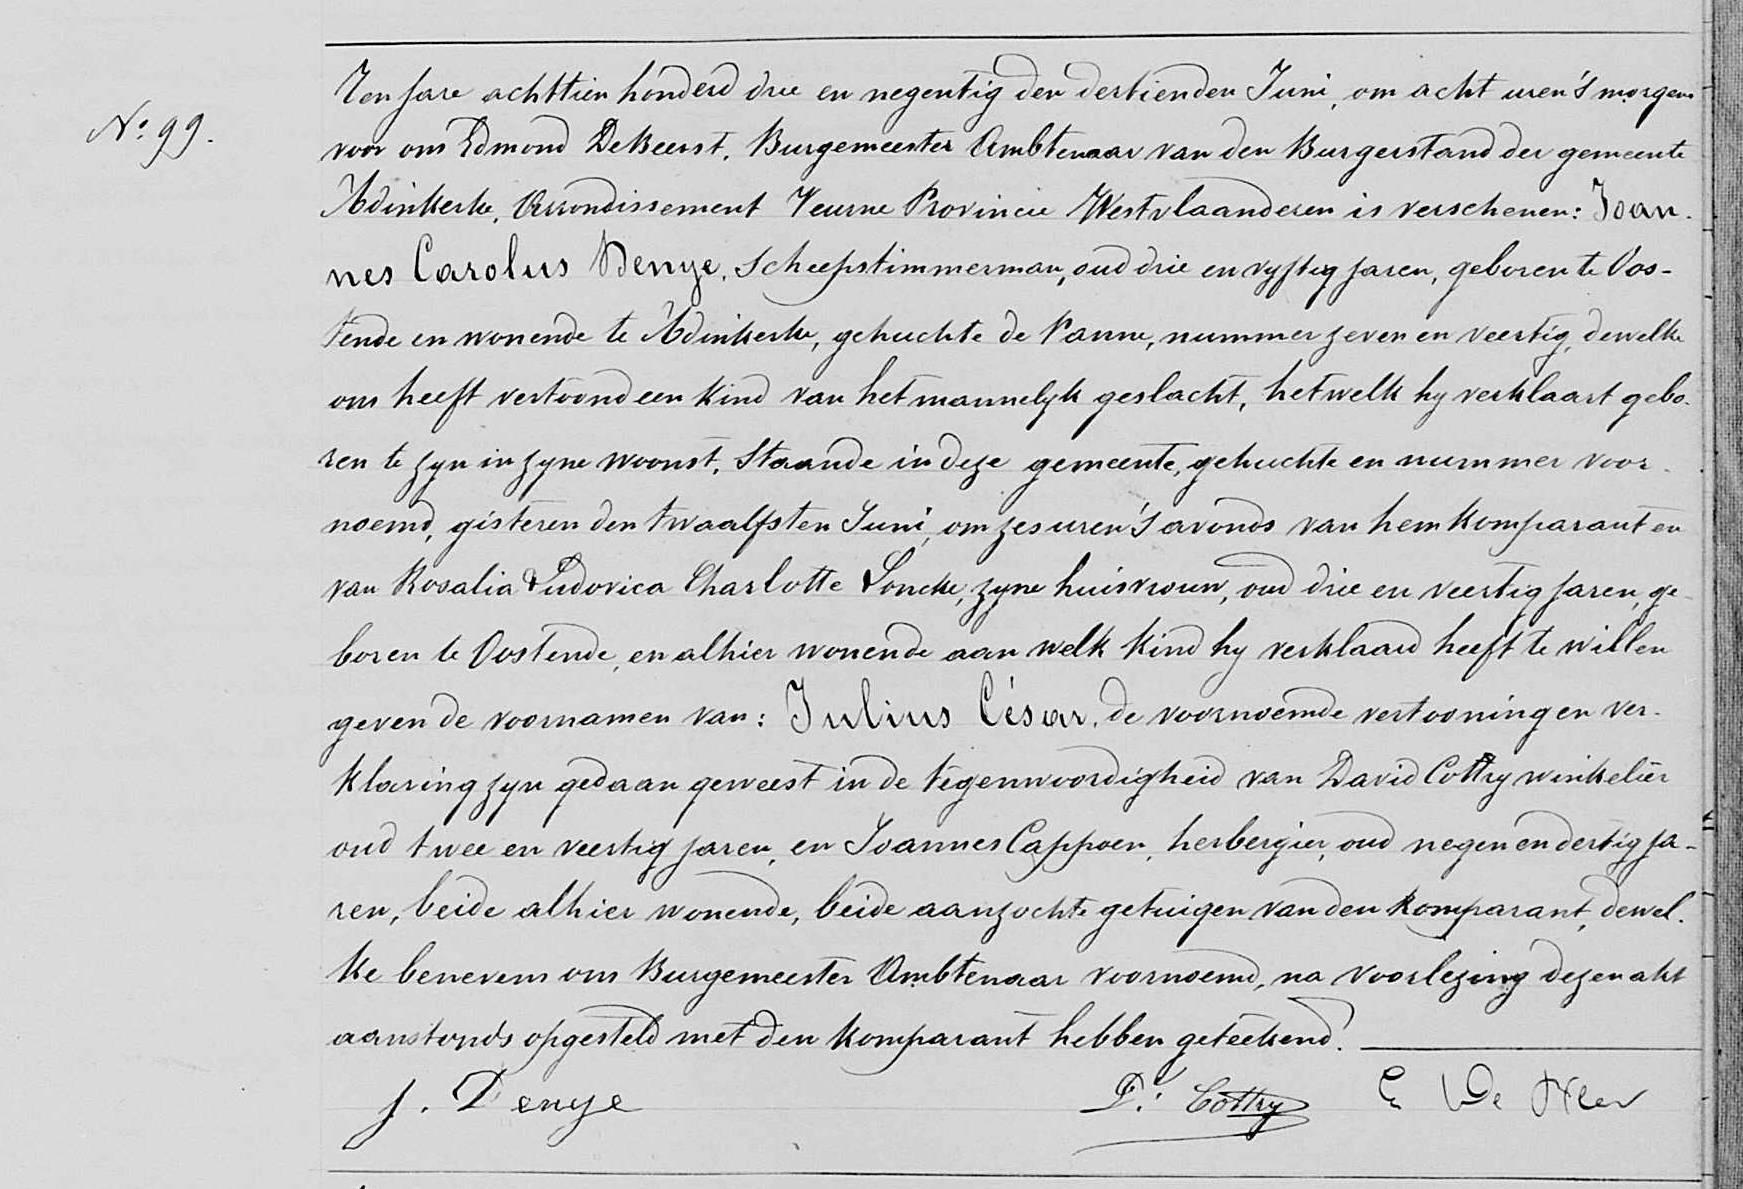 N.º 99.
Ten Jare achttien honderd drie en negentig den dertienden Juni, om acht uren 's morgens
voor ons Edmond DeBeerst, Burgemeester Ambtenaar van den Burgerstand der gemeente
Adinkerke, Arrondissement Veurne Provincie Westvlaanderen is verschenen: Joan-
nes Carolus Denye, scheepstimmerman, oud drie en vyftig jaren, geboren te Oos-
tende en wonende te Adinkerke, gehuchte de Panne, nummer zeven en veertig, dewelke
ons heeft vertoond een kind van het mannelyk geslacht, hetwelk hy verklaart gebo-
ren te zyn in zyne woonst, staande in deze gemeente, gehuchte en nummer voor-
noemd, gisteren den twaalfsten Juni, om zes uren 's avonds van hem komparant en
van Rosalia Ludovica Charlotte Loncke, zyne huisvrouw, oud drie en veertig jaren, ge-
boren te Oostende, en alhier wonende aan welk kind hy verklaard heeft te willen
geven de voornamen van: Julius César, de voornoemde vertooning en ver-
klaring zyn gedaan geweest in de tegenwoordigheid van David Cottry winkelier
oud twee en veertig jaren, en Joannes Cappoen, herbergier, oud negen en dertig ja-
ren, beide alhier wonende, beide aanzochte getuigen van den komparant, dewel-
ke benevens ons Burgemeester Ambtenaar voornoemd, na voorlezing dezen akt
aanstonds opgesteld met den komparant hebben geteekend.
J. Denye D. Cottry